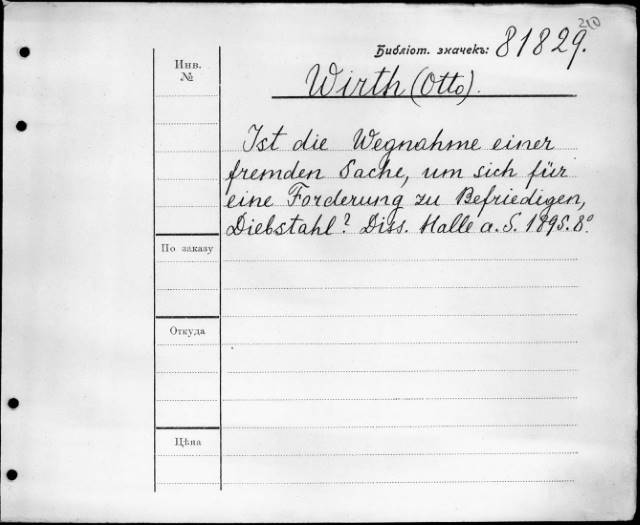 Библіот. значекъ: 81829.
Инв.
№
Wirth (Otto).
Ist die Wegnahme einer
fremden Sache, um sich für
eine Forderung zu Befriedigen,
Diebstahl? Diss. Halle a. S. 1895. 8º
По заказу
Откуда
Цѣна